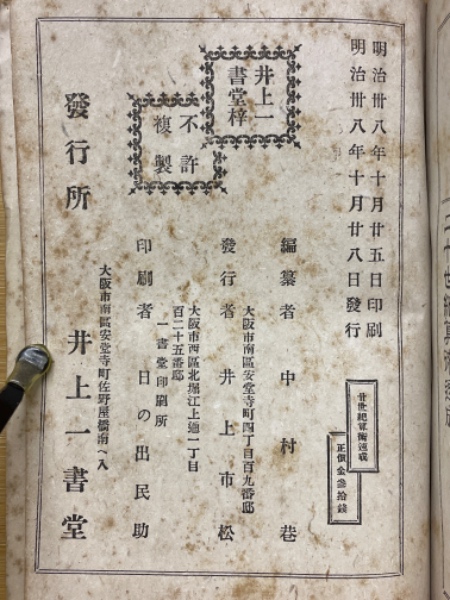 明治卅八年十月廿五日印刷
明治卅八年十月廿八日發行
廿世紀算術速成
正價金參拾錢
井上一
書堂梓
不許
複製
編纂者 中村巷
大阪市南區安堂寺町四丁目百九番邸
發行者 井上市松
大阪市西區北堀江上通一丁目
百二十五番邸
一書堂印刷所
印刷者 日の出民助
大阪市南區安堂寺町佐野屋橋南へ入
發行所 井上一書堂